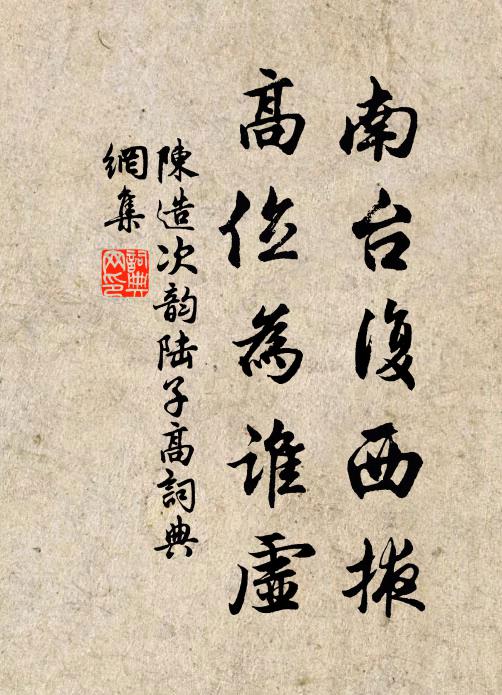 南台復西掖
高位為誰虛
陳造次韵陆子高詞典
網集
詞典
网印